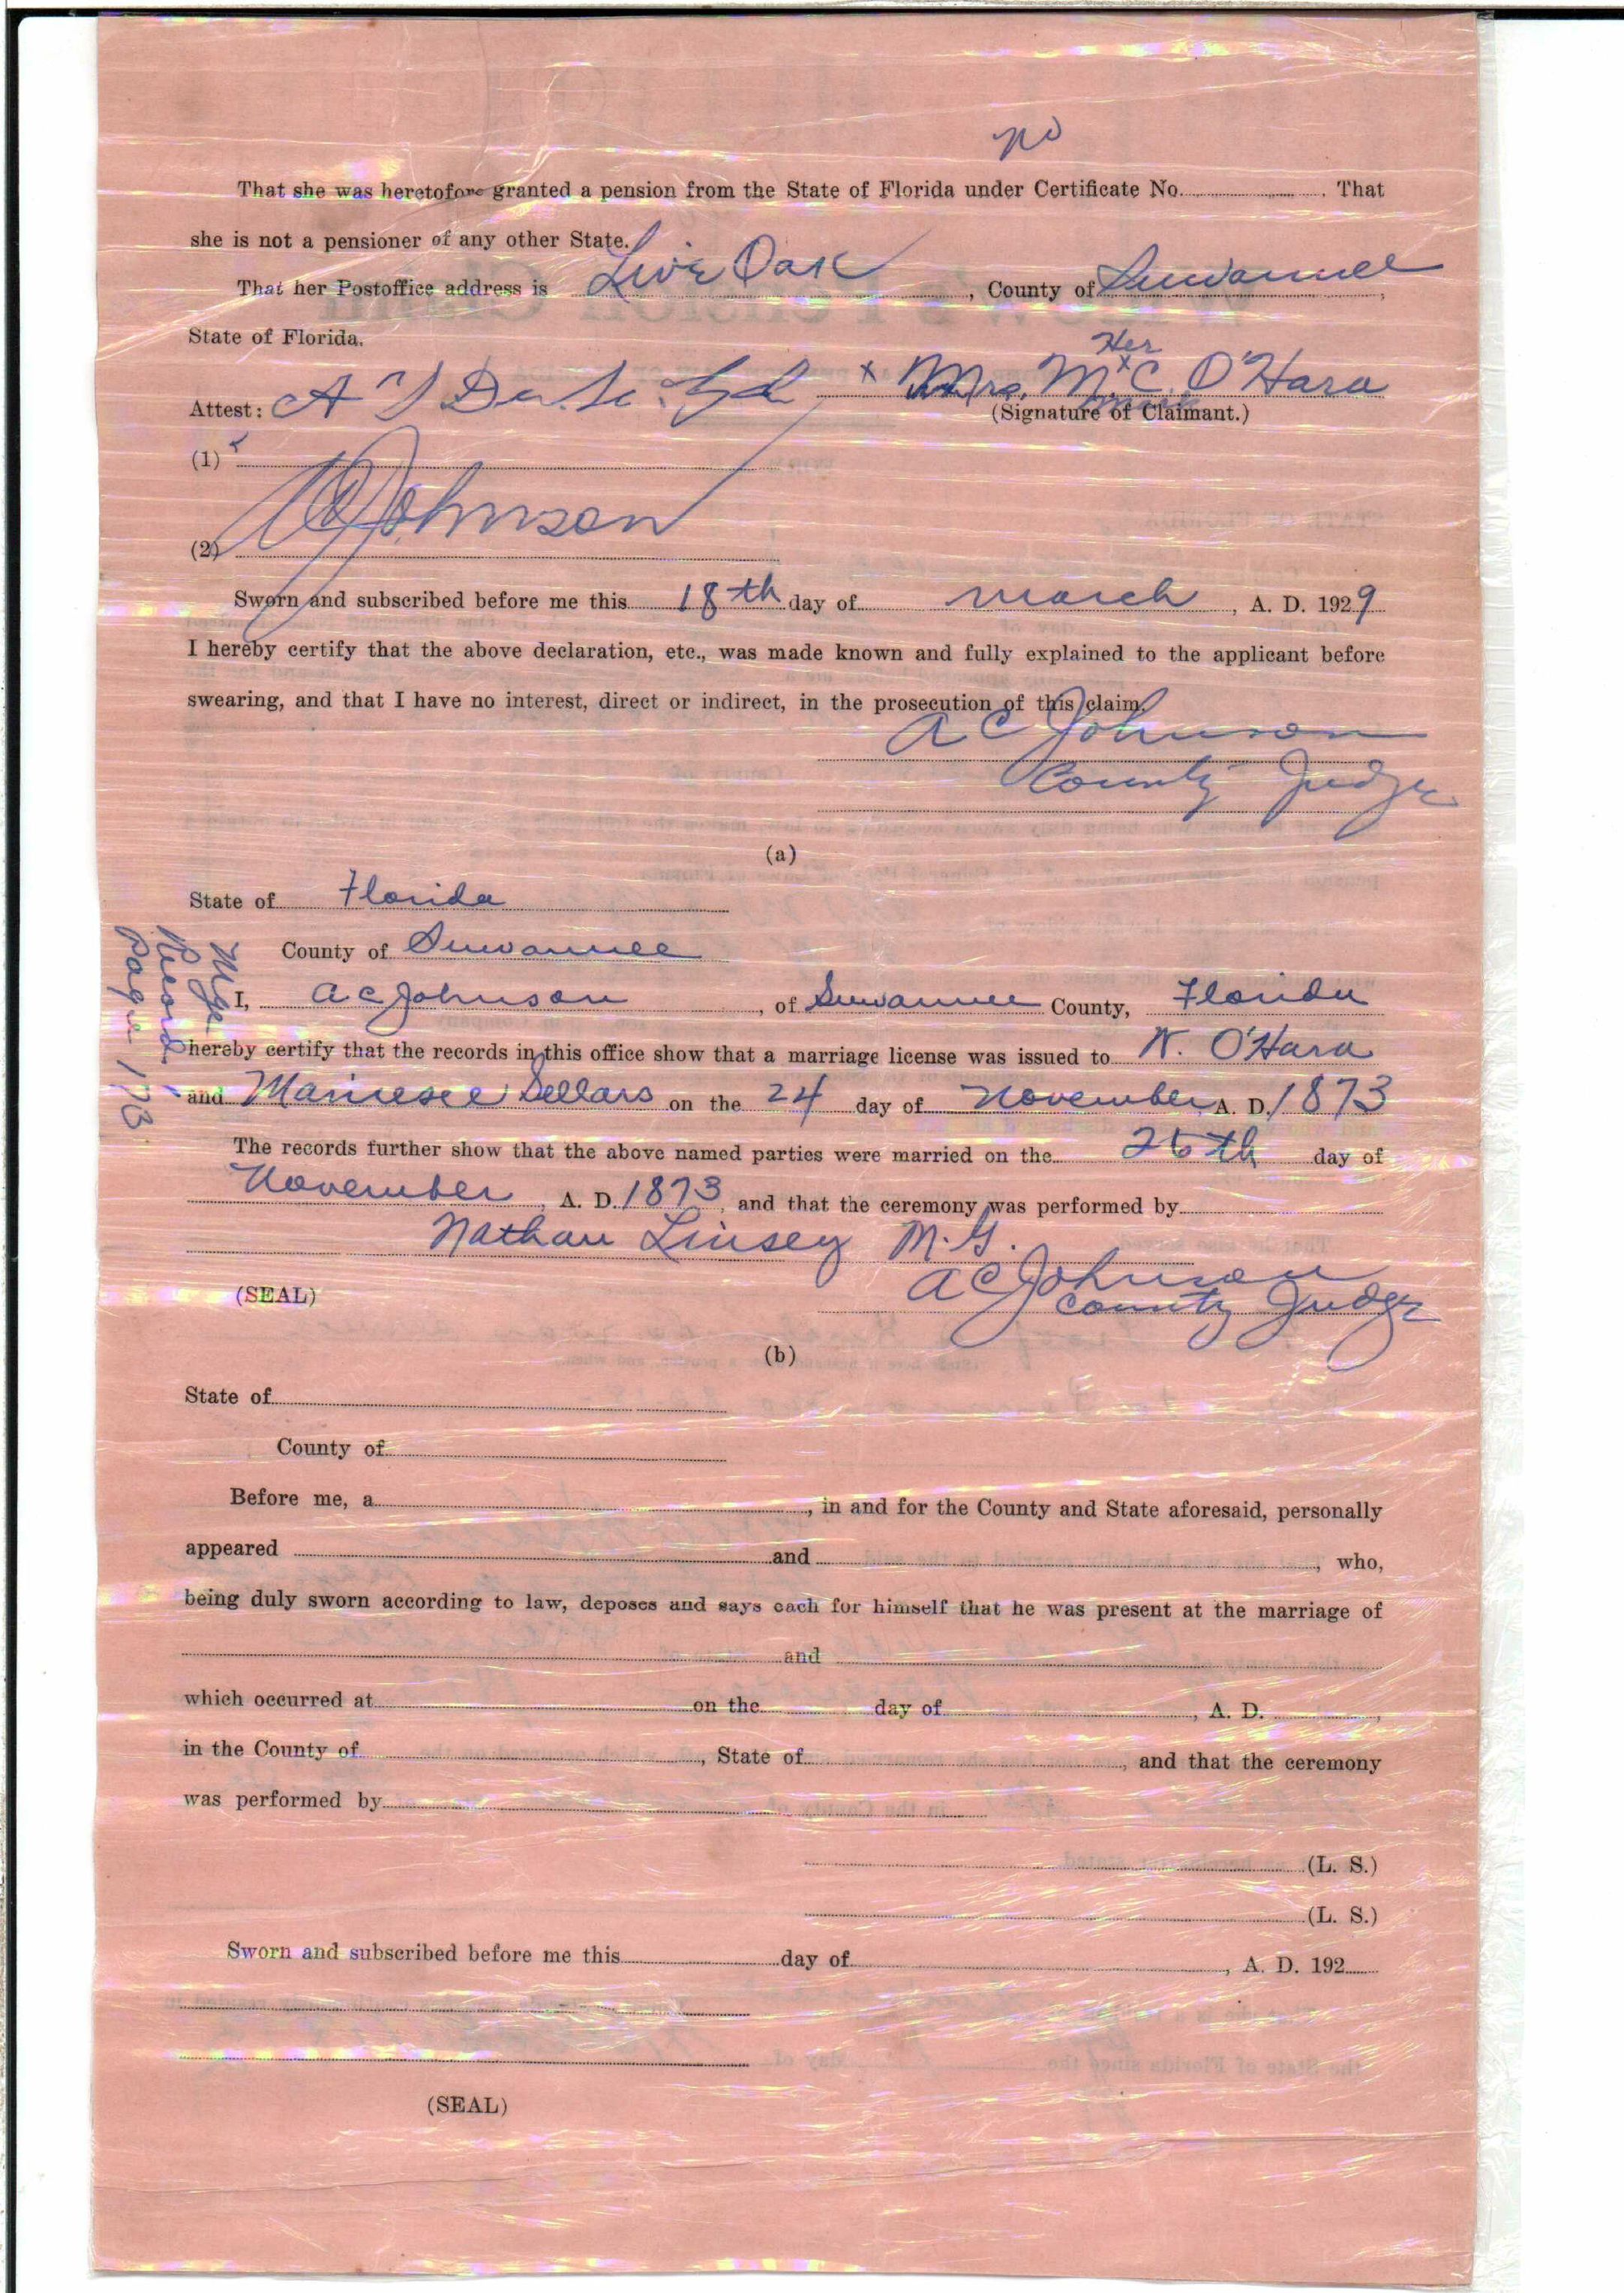 no
That she was heretofore granted a pension from the State of Florida under Certificate No. . That
she is not a pensioner of any other State.
That her Postoffice address is Live Oak , County of Suwannee ,
State of Florida.
Her
Attest: x Mrs. M x C. O'Hara
mark
(Signature of Claimant.)
(1)
(2) A C Johnson
Sworn and subscribed before me this 18th day of march , A. D. 1929
I hereby certify that the above declaration, etc., was made known and fully explained to the applicant before
swearing, and that I have no interest, direct or indirect, in the prosecution of this claim.
A C Johnson
County Judge
(a)
State of Florida
County of Suwannee
I, A C Johnson , of Suwannee County, Florida
hereby certify that the records in this office show that a marriage license was issued to O'Hara
and Sellars on the 24 day of November A. D. 1873
The records further show that the above named parties were married on the day of
November , A. D. 1873 , and that the ceremony was performed by
Nathan Linsey M. G.
A C Johnson
(SEAL) County Judge
Record
page 173
(b)
State of
County of
Before me, a , in and for the County and State aforesaid, personally
appeared and , who,
being duly sworn according to law, deposes and says each for himself that he was present at the marriage of
and
which occurred at on the day of , A. D. ,
in the County of , State of , and that the ceremony
was performed by
(L. S.)
(L. S.)
Sworn and subscribed before me this day of , A. D. 192
(SEAL)